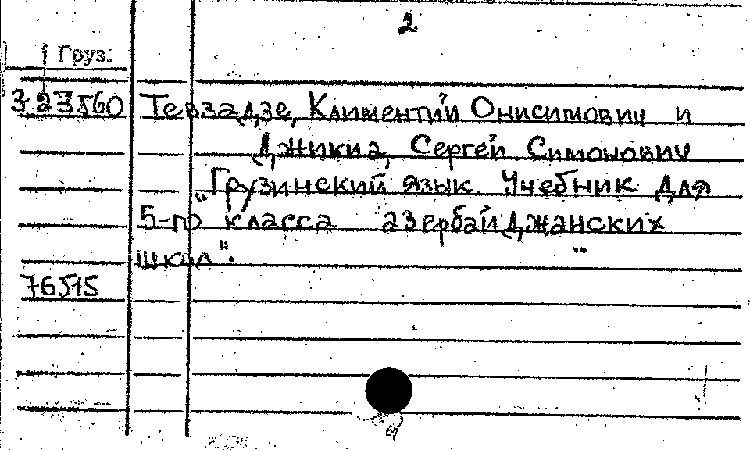 2
Груз:
323560 Тевзадзе, Климентий Онисимович и
Джикиа, Сергей Симонович
"Грузинский язык. Учебник для
5-го класса азербайджанских
школ".
76515